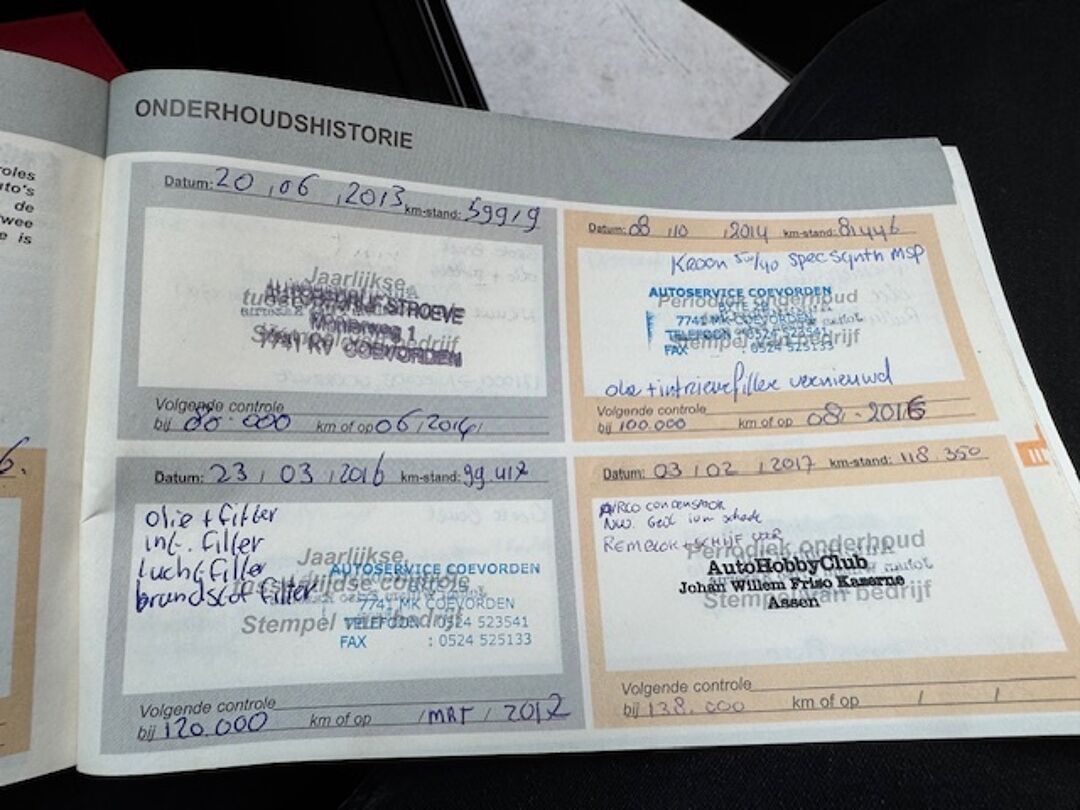 roles
uto's
de
wee
e is
6.
ONDERHOUDSHISTORIE
Datum: 20 , 06 , 2013 km-stand: 59919
Jaarlijkse
AUTOBEDRIJF STROEVE
Monierweg 1
Stempel van bedrijf
7741 KV COEVORDEN
Volgende controle
bij 80.000 km of op 06/2014/
Datum: 08 /10 /2014 km-stand: 81446
Kroon 5w/40 Spec Synth MSP
AUTOSERVICE COEVORDEN
Periodiek onderhoud
7741 MK COEVORDEN
TELEFOON : 0524 523541
Stempel van bedrijf
FAX : 0524 525133
olie + intrieurfilter vernieuwd
Volgende controle
bij 100.000 km of op 08 - 2016
Datum: 23 / 03 / 2016 km-stand: 99.417
olie + filter
int. filter
lucht filter
brandstof filter
Jaarlijkse
AUTOSERVICE COEVORDEN
tussentijdse controle
7741 MK COEVORDEN
Stempel van bedrijf
TELEFOON : 0524 523541
FAX : 0524 525133
Volgende controle
bij 120.000 km of op /MRT / 2017
Datum: 03 / 02 / 2017 km-stand: 118 350
AIRCO CONDENSATOR
NW. Gezt ivm schade
REMBLOK + SCHIJF VOOR
Periodiek onderhoud
AutoHobbyClub
Johan Willem Friso Kazerne
Stempel van bedrijf
Assen
Volgende controle
bij 138.000 km of op / /